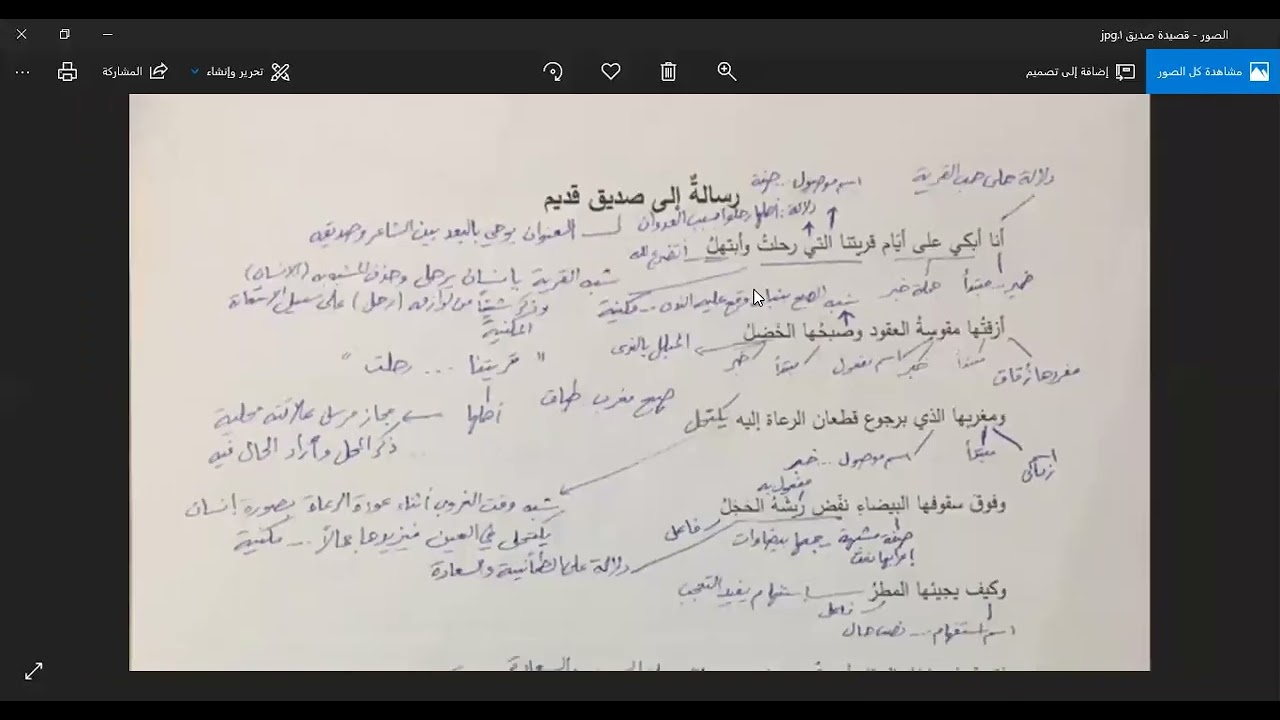 الصور - قصيدة صديق ١.jpg
مشاهدة كل الصور
إضافة إلى تصميم
تحرير وإنشاء
المشاركة
دلالة على حب القرية
اسم موصول .. صفة
رسالةٌ إلى صديق قديم
دلالة: أهلها رحلوا بسبب العدوان
العنوان يوحي بالبعد بين الشاعر وصديقه
أنا أبكي على أيّام قريتنا التي رحلتْ وأبتهلُ
أتضرع لله
ضمير .. مبتدأ
جملة خبر
شبه القرية بإنسان يرحل وحذف المشبه به (الإنسان)
وذكر شيئًا من لوازمه (رحل) على سبيل الاستعارة
المكنية
شبه الصبح بنبات وقع عليه الندى ... مكنية
أزقتُها مقوسةُ العقود وصُبحُها الخَضِلُ
المبلل بالندى
مفردها زقاق
مبتدأ
خبر
اسم مفعول
مبتدأ
خبر
" قريتنا ... رحلت "
صبح مغرب طباق
أهلها
مجاز مرسل علاقته محلية
ذكر المحل وأراد الحال فيه
ومغربها الذي برجوع قطعان الرعاة إليه يكتحل
مبتدأ
اسم موصول ... خبر
مفعول به
شبه وقت الغروب أثناء عودة الرعاة بصورة إنسان
يكتحل في العين فيزيدها جمالاً ... مكنية
وفوق سقوفها البيضاءِ نفّض ريشَهُ الحَجَلُ
فاعل
صفة مشبهة جمعها بيضاوات
إعرابها نعت
دلالة على الطمأنينة والسعادة
وكيف يجيئها المطرُ
استفهام يفيد التعجب
فاعل
اسم استفهام ... نصب حال